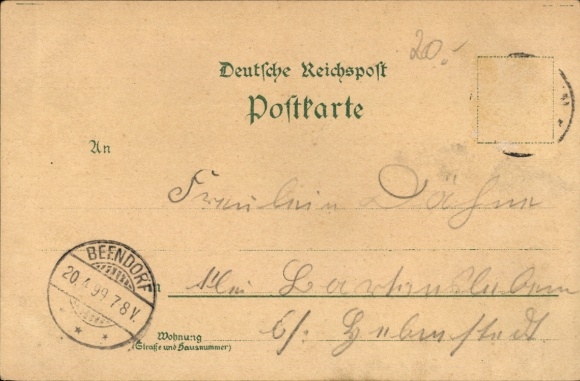 20.-
Deutsche Reichspost
Postkarte
An
Fräulein Dähne
BEENDORF
20.4.99.7-8V.
Bartensleben
Wohnung
(Straße und Hausnummer)
b/.